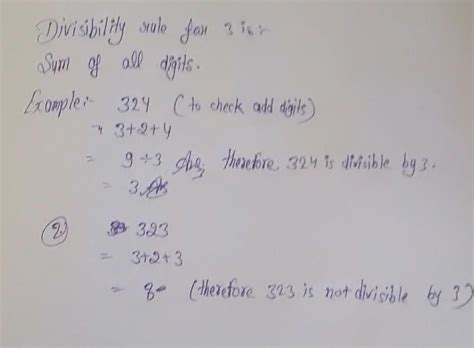 Divisibility rule for 3 is:-
Sum of all digits.
Example:- 324 (to check add digits)
→ 3+2+4
= 9÷3 Ans, therefore 324 is divisible by 3.
= 3
② 323
= 3+2+3
= 8 (therefore 323 is not divisible by 3)